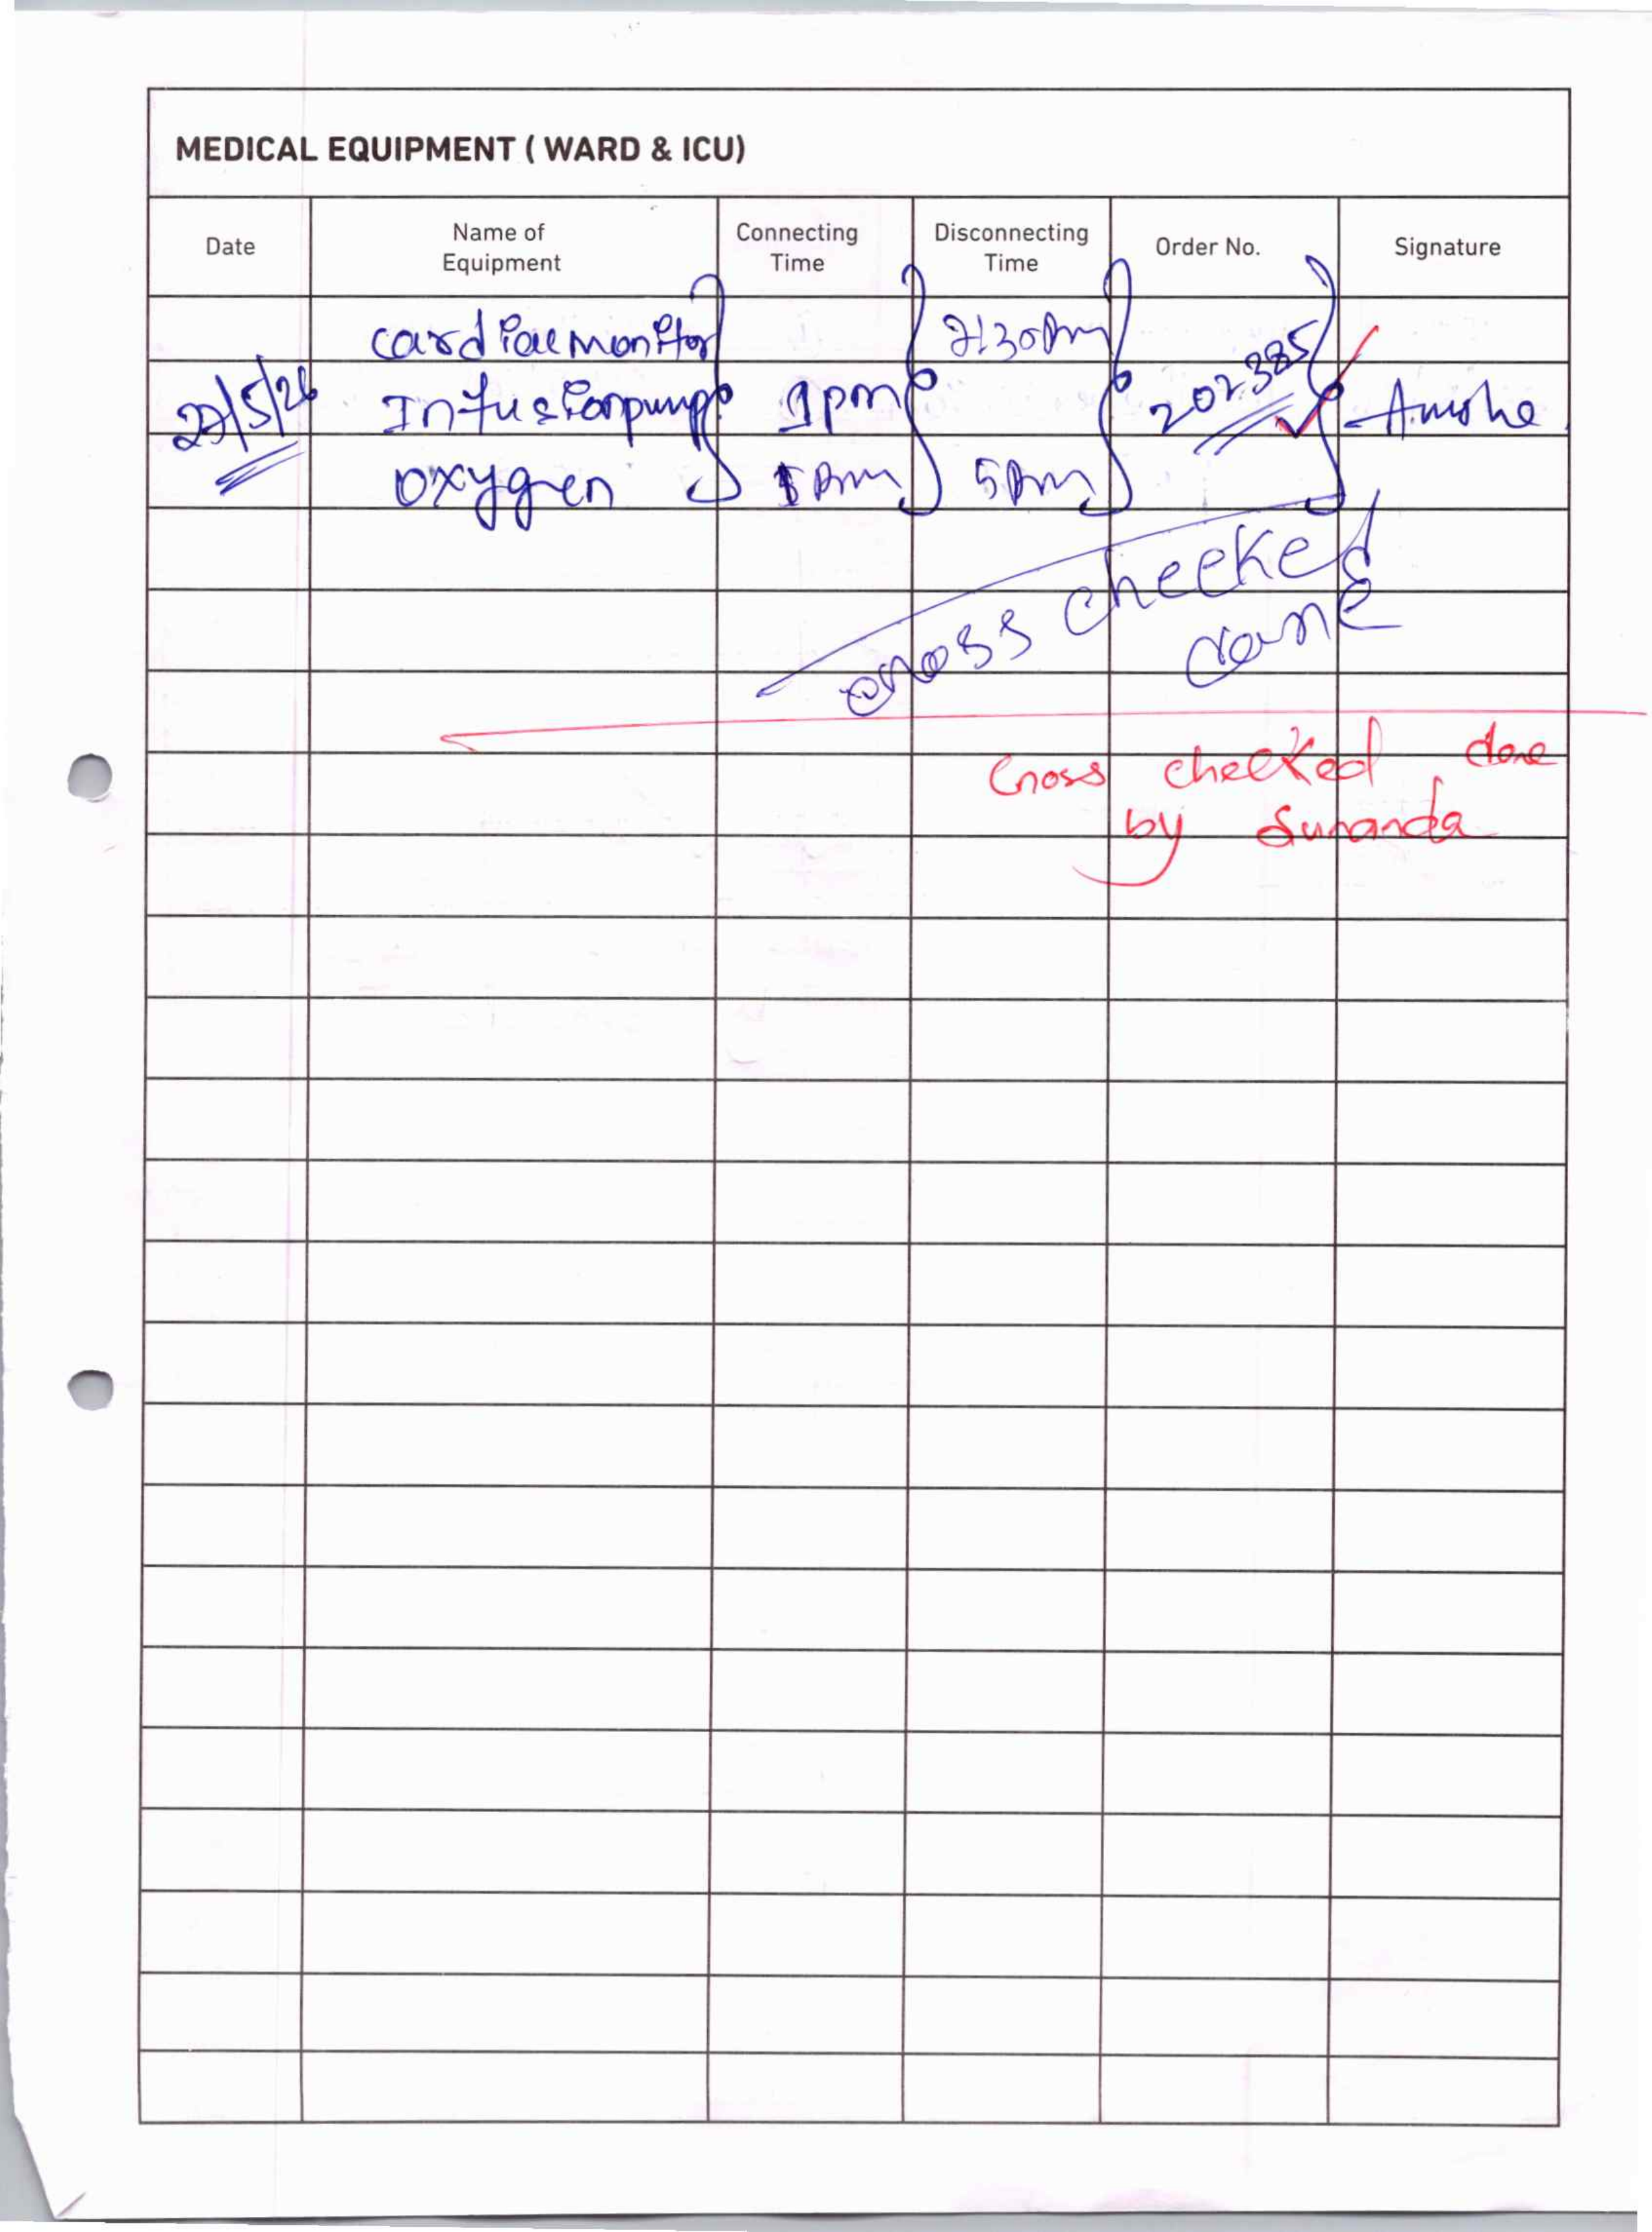 MEDICAL EQUIPMENT ( WARD & ICU)
Date Name of Equipment Connecting Time Disconnecting Time Order No. Signature
cardiac monitor
Infusion pump 1pm 202385
oxygen 5pm
cross checked
done
Cross checked done
by Sunanda